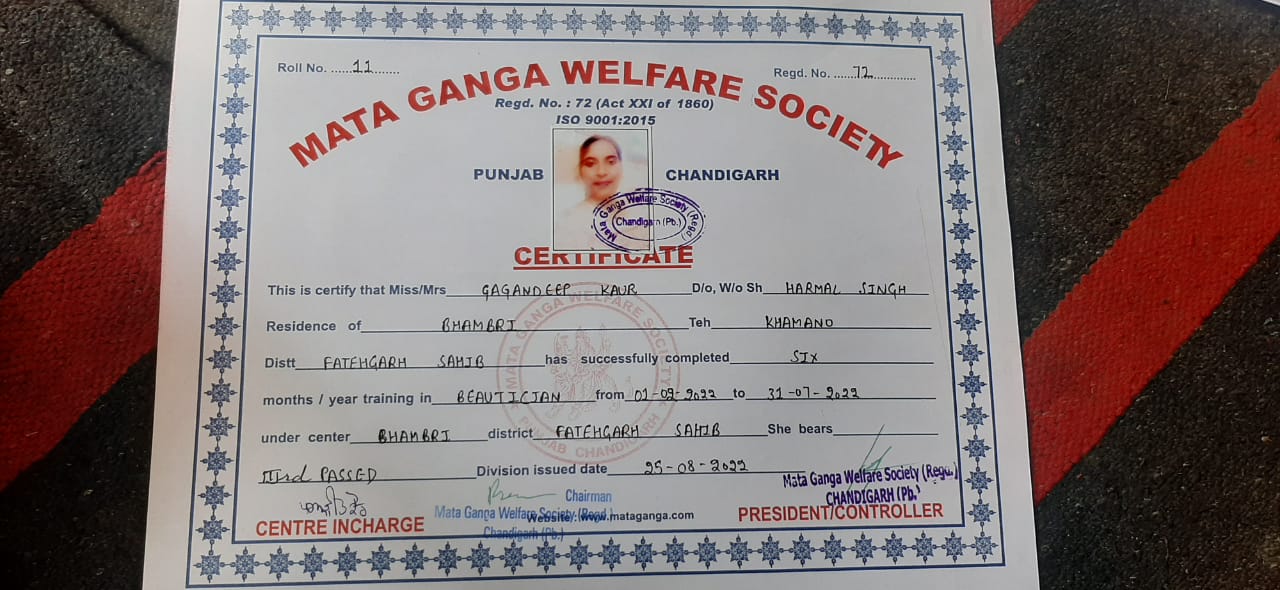 Roll No. ......11....... Regd. No. .....72.............
MATA GANGA WELFARE SOCIETY
Regd. No. : 72 (Act XXI of 1860)
ISO 9001:2015
PUNJAB CHANDIGARH
Mata Ganga Welfare Society (Regd) Chandigarh (Pb.)
CERTIFICATE
This is certify that Miss/Mrs GAGANDEEP KAUR D/o, W/o Sh HARMAL SINGH
Residence of BHAMBRI Teh KHAMANO
Distt FATEHGARH SAHIB has successfully completed SIX
months / year training in BEAUTICIAN from 01-02-2022 to 31-07-2022
under center BHAMBRI district FATEHGARH SAHIB She bears
IIrd PASSED Division issued date 25-08-2022
MATA GANGA WELFARE SOCIETY
PUNJAB CHANDIGARH
Mata Ganga Welfare Society (Regd.)
CHANDIGARH (Pb.)
Chairman
CENTRE INCHARGE Mata Ganga Welfare Society (Regd.) Website : www.mataganga.com PRESIDENT/CONTROLLER
Chandigarh (Pb.)